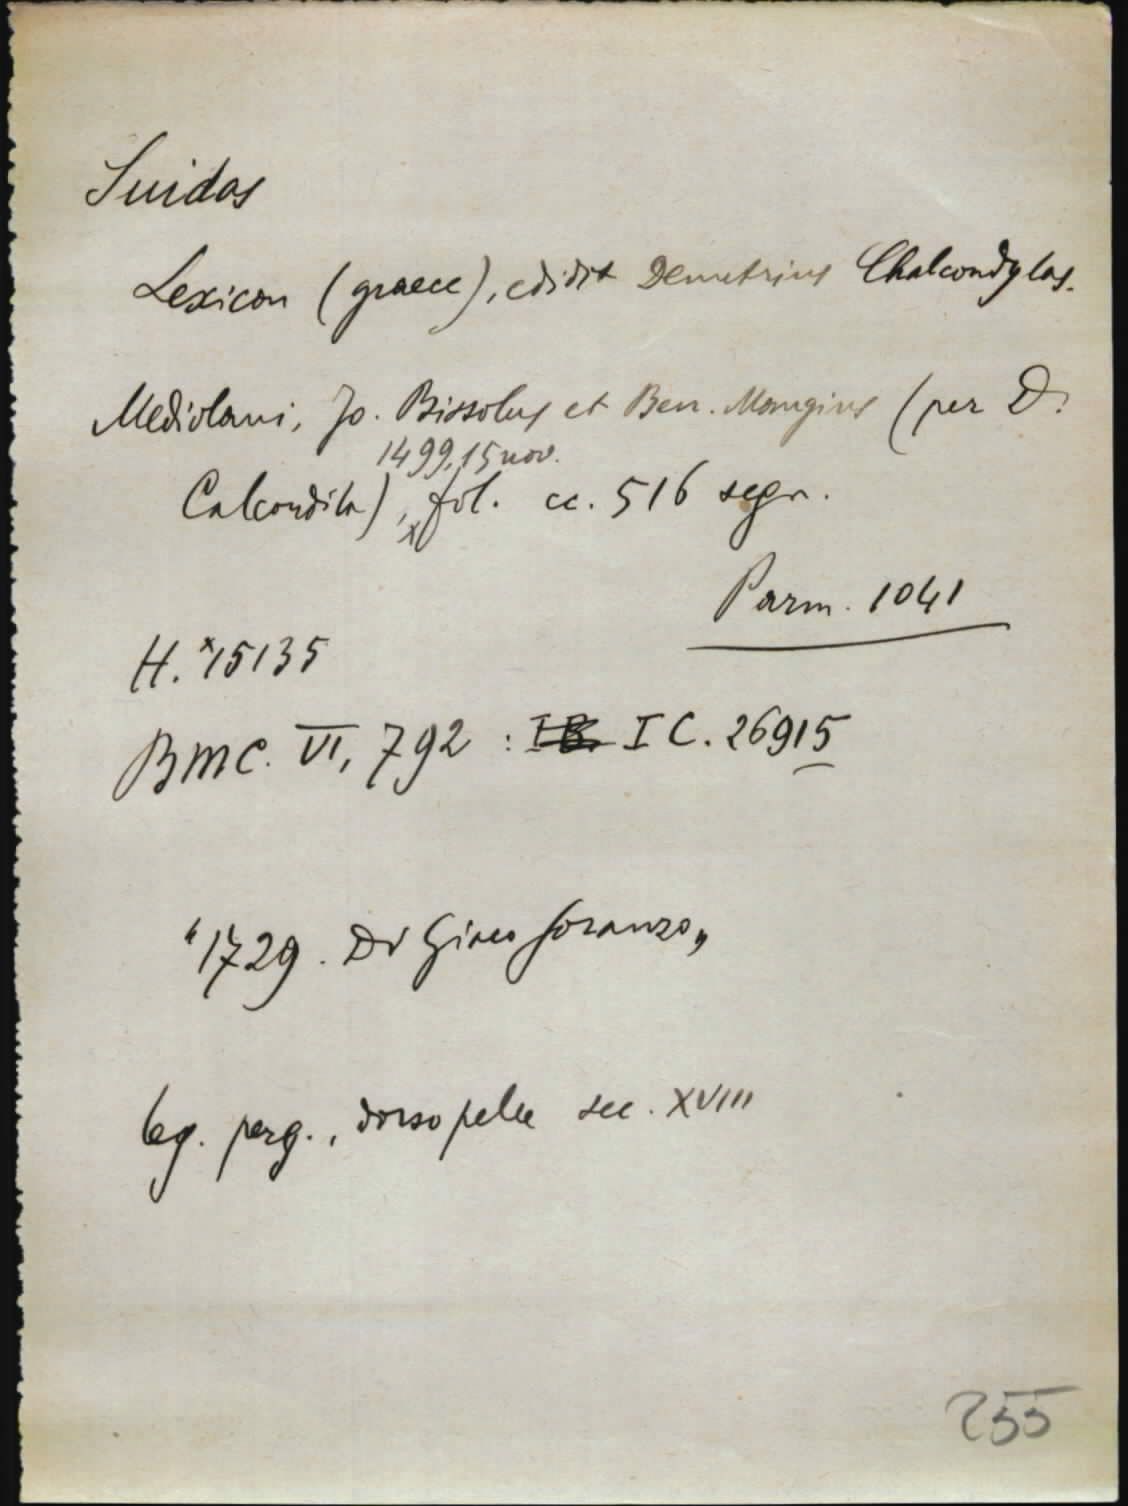 Suidas
Lexicon (graece), edidit Demetrius Chalcondylas.
Mediolani, Jo. Bissolus et Ben. Mangius (per D.
1499, 15 nov.
Calcondila), x fol. cc. 516 segn.
Parm. 1041
H. *15135
BMC. VI, 792 : IB. IC. 26915
"1729. Di Giaco Soranzo„
leg. perg., dorso pelle sec. XVIII
255